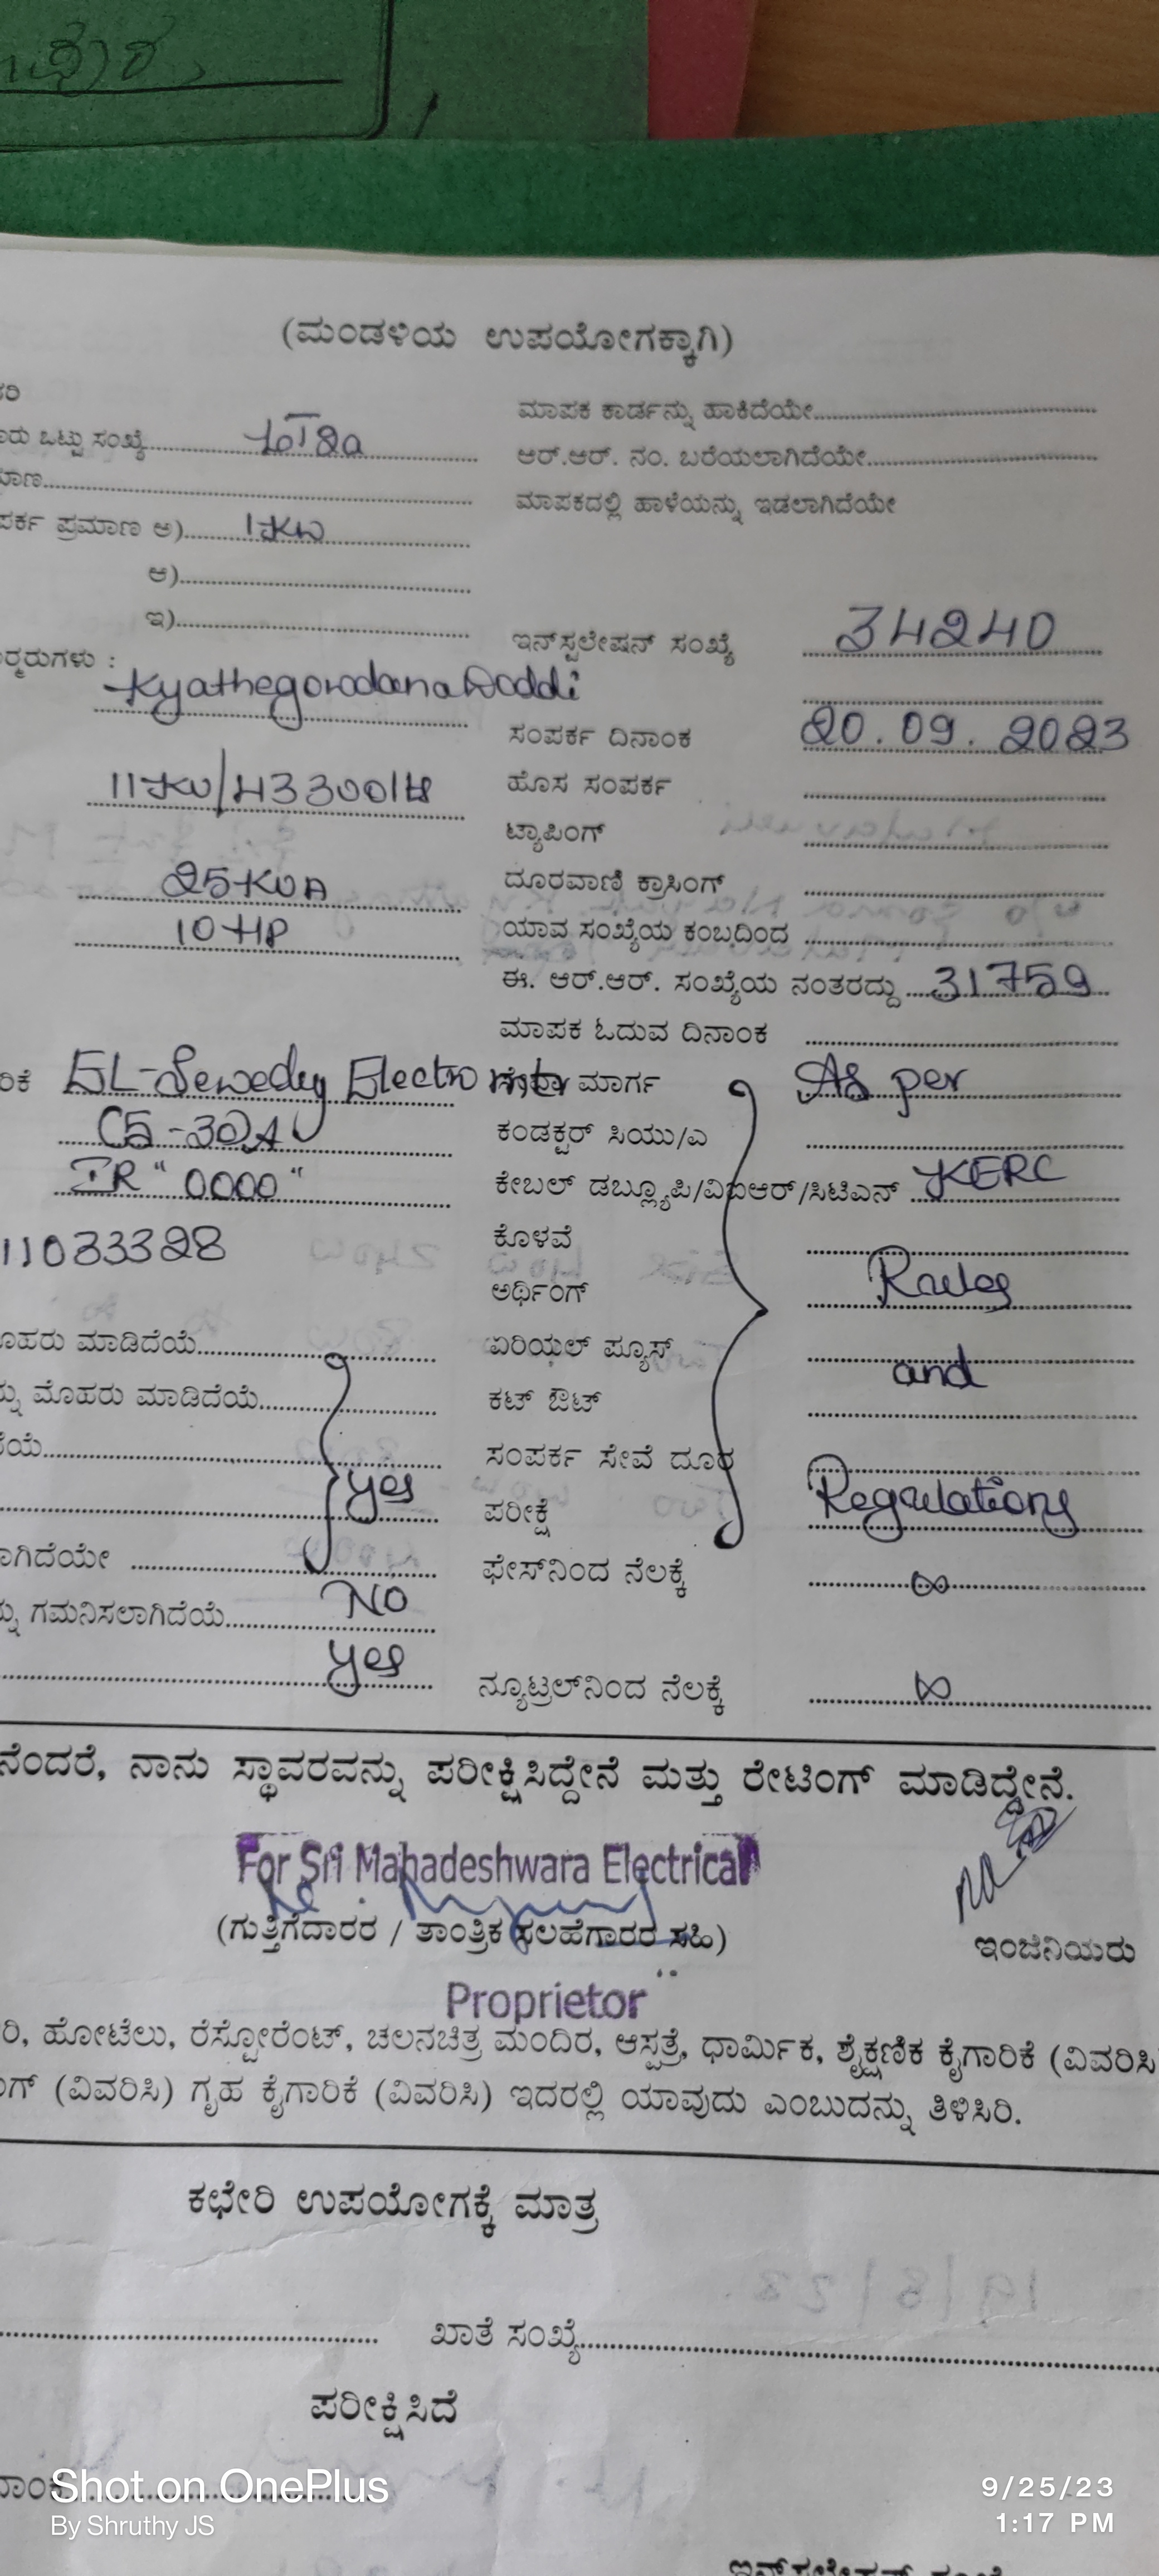 (ಮಂಡಳಿಯ ಉಪಯೋಗಕ್ಕಾಗಿ)
ಮಾಪಕ ಕಾರ್ಡನ್ನು ಹಾಕಿದೆಯೇ
ಒಟ್ಟು ಸಂಖ್ಯೆ
ಆರ್.ಆರ್. ನಂ. ಬರೆಯಲಾಗಿದೆಯೇ
ಮಾಪಕದಲ್ಲಿ ಹಾಳೆಯನ್ನು ಇಡಲಾಗಿದೆಯೇ
ಪ್ರಮಾಣ ಅ) 1KW
ಆ)
ಇ)
ಇನ್‌ಸ್ಟಲೇಷನ್ ಸಂಖ್ಯೆ 34240
KyathegowdanaDoddi
ಸಂಪರ್ಕ ದಿನಾಂಕ 20.09.2023
11KV/433 ಹೊಸ ಸಂಪರ್ಕ
ಟ್ಯಾಪಿಂಗ್
25KVA ದೂರವಾಣಿ ಕ್ರಾಸಿಂಗ್
10HP ಯಾವ ಸಂಖ್ಯೆಯ ಕಂಬದಿಂದ
ಈ. ಆರ್.ಆರ್. ಸಂಖ್ಯೆಯ ನಂತರದ್ದು 31759
ಮಾಪಕ ಓದುವ ದಿನಾಂಕ
EL-Sewedy Electrometer ಮಾರ್ಗ As per
C5-30A ಕಂಡಕ್ಟರ್ ಸಿಯು/ಎ
IR "0000" ಕೇಬಲ್ ಡಬ್ಲ್ಯೂಪಿ/ವಿಐಆರ್/ಸಿಟಿಎನ್ KERC
11033328 ಕೊಳವೆ
ಅರ್ಥಿಂಗ್ Rules
ಮಾಡಿದೆಯೆ ಏರಿಯಲ್ ಫ್ಯೂಸ್ and
ಮೊಹರು ಮಾಡಿದೆಯೆ ಕಟ್ ಔಟ್
ಸಂಪರ್ಕ ಸೇವೆ ದೂರ
Yes ಪರೀಕ್ಷೆ Regulations
ಫೇಸ್‌ನಿಂದ ನೆಲಕ್ಕೆ ∞
ಗಮನಿಸಲಾಗಿದೆಯೆ NO
Yes ನ್ಯೂಟ್ರಲ್‌ನಿಂದ ನೆಲಕ್ಕೆ ∞
ನಾನು ಸ್ಥಾವರವನ್ನು ಪರೀಕ್ಷಿಸಿದ್ದೇನೆ ಮತ್ತು ರೇಟಿಂಗ್ ಮಾಡಿದ್ದೇನೆ.
For Sri Mahadeshwara Electrical
(ಗುತ್ತಿಗೆದಾರರ / ತಾಂತ್ರಿಕ ಸಲಹೆಗಾರರ ಸಹಿ) ಇಂಜಿನಿಯರು
Proprietor
ಹೋಟೆಲು, ರೆಸ್ಟೋರೆಂಟ್, ಚಲನಚಿತ್ರ ಮಂದಿರ, ಆಸ್ಪತ್ರೆ, ಧಾರ್ಮಿಕ, ಶೈಕ್ಷಣಿಕ ಕೈಗಾರಿಕೆ (ವಿವರಿಸಿ
(ವಿವರಿಸಿ) ಗೃಹ ಕೈಗಾರಿಕೆ (ವಿವರಿಸಿ) ಇದರಲ್ಲಿ ಯಾವುದು ಎಂಬುದನ್ನು ತಿಳಿಸಿರಿ.
ಕಛೇರಿ ಉಪಯೋಗಕ್ಕೆ ಮಾತ್ರ
ಖಾತೆ ಸಂಖ್ಯೆ
ಪರೀಕ್ಷಿಸಿದೆ
Shot on OnePlus
By Shruthy JS
9/25/23
1:17 PM